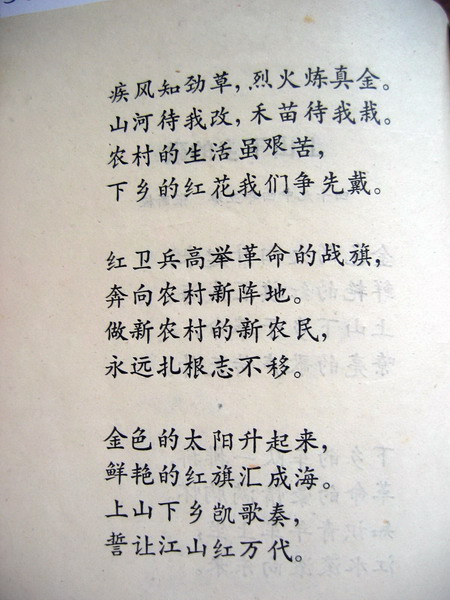 疾风知劲草,烈火炼真金。
山河待我改,禾苗待我栽。
农村的生活虽艰苦,
下乡的红花我们争先戴。
红卫兵高举革命的战旗,
奔向农村新阵地。
做新农村的新农民,
永远扎根志不移。
金色的太阳升起来,
鲜艳的红旗汇成海。
上山下乡凯歌奏,
誓让江山红万代。